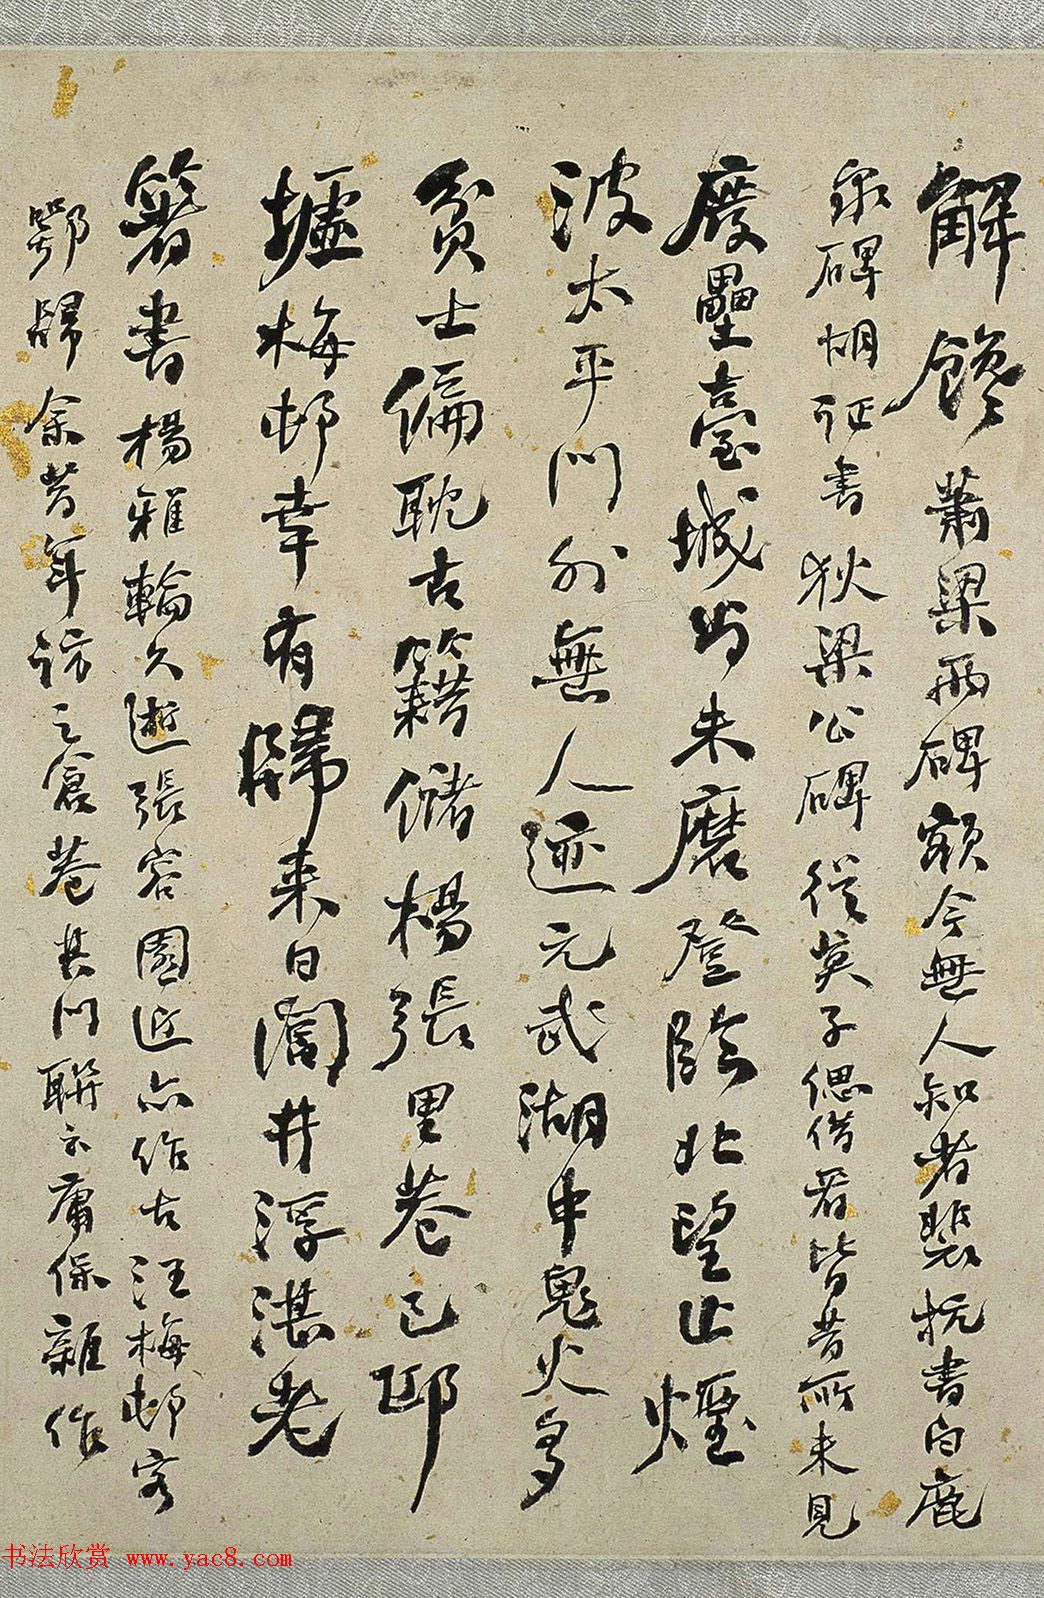 解饞蕭梁兩碑額今無人知者裴抗書白鹿
泉碑胡証書狄梁公碑從莫子偲借看皆昔所未見
廢壘臺城尚未磨登陴北望止煙
波太平門外無人迹元武湖中鬼火多
貧士偏耽古籍儲楊張里巷已邱
墟梅邨幸有歸來日閭井浮湛老
著書楊雅輪久逝張容園近亦作古汪梅邨客
鄂歸余昔年訪之倉巷其門聯云庸保雜作
书法欣赏 www.yac8.com